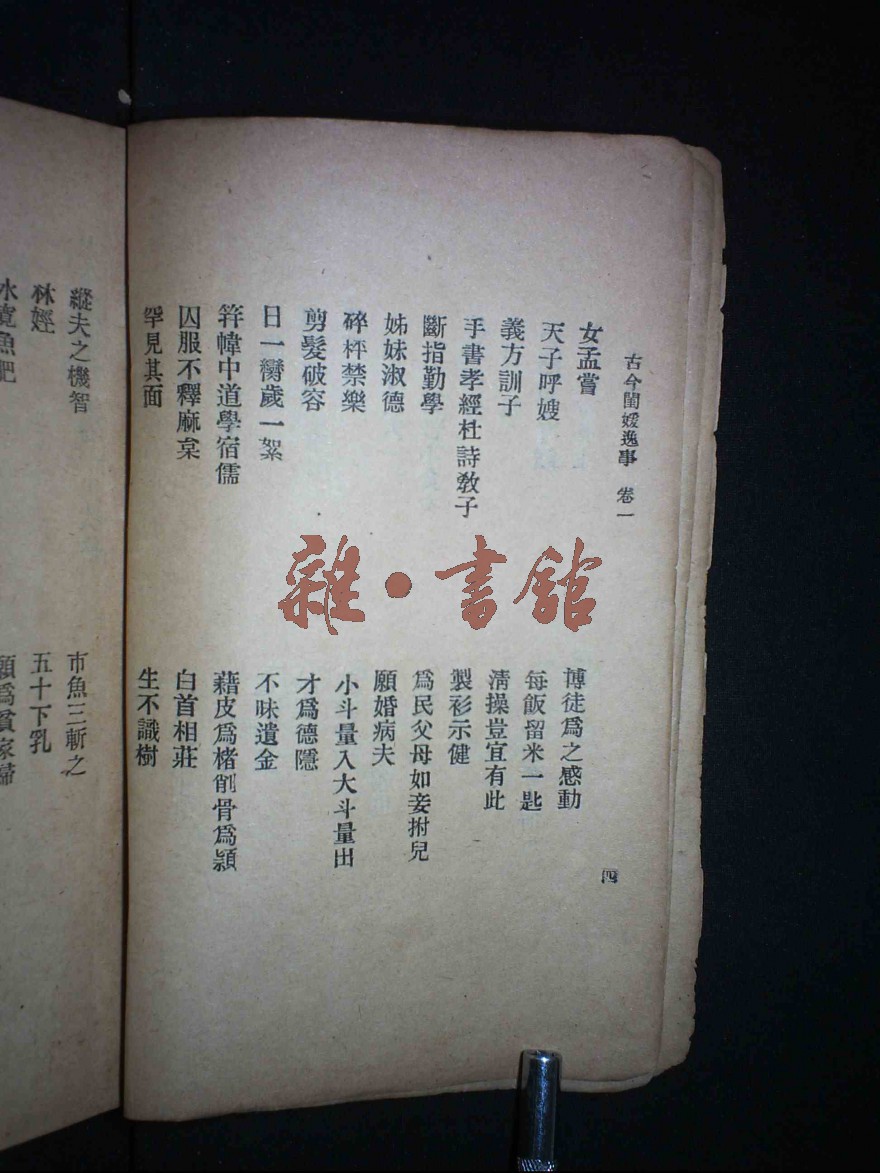 古今閨媛逸事 卷一
四
女孟嘗
博徒爲之感動
天子呼嫂
每飯留米一匙
義方訓子
清操豈宜有此
手書孝經杜詩教子
製衫示健
斷指勤學
爲民父母如妾拊兒
姊妹淑德
願婚病夫
碎枰禁樂
小斗量入大斗量出
剪髮破容
才爲德隱
日一臠歲一絮
不昧遺金
笄幃中道學宿儒
藉皮爲楮削骨爲穎
囚服不釋麻枲
白首相莊
罕見其面
生不識樹
縱夫之機智
市魚三斬之
五十下乳
願爲貧家婦
雜·書館